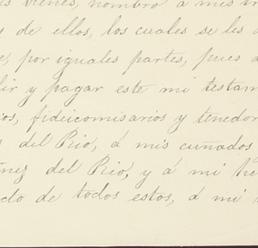 es bienes, nombro á mis
s de ellos, los cuales se les
e, por iguales partes, pues
lir y pagar este mi testam
ios, fideicomisarios y tenedor
s del Rio, á mis cuñados
ñez del Rio, y á mi he
cto de todos estos, á mi